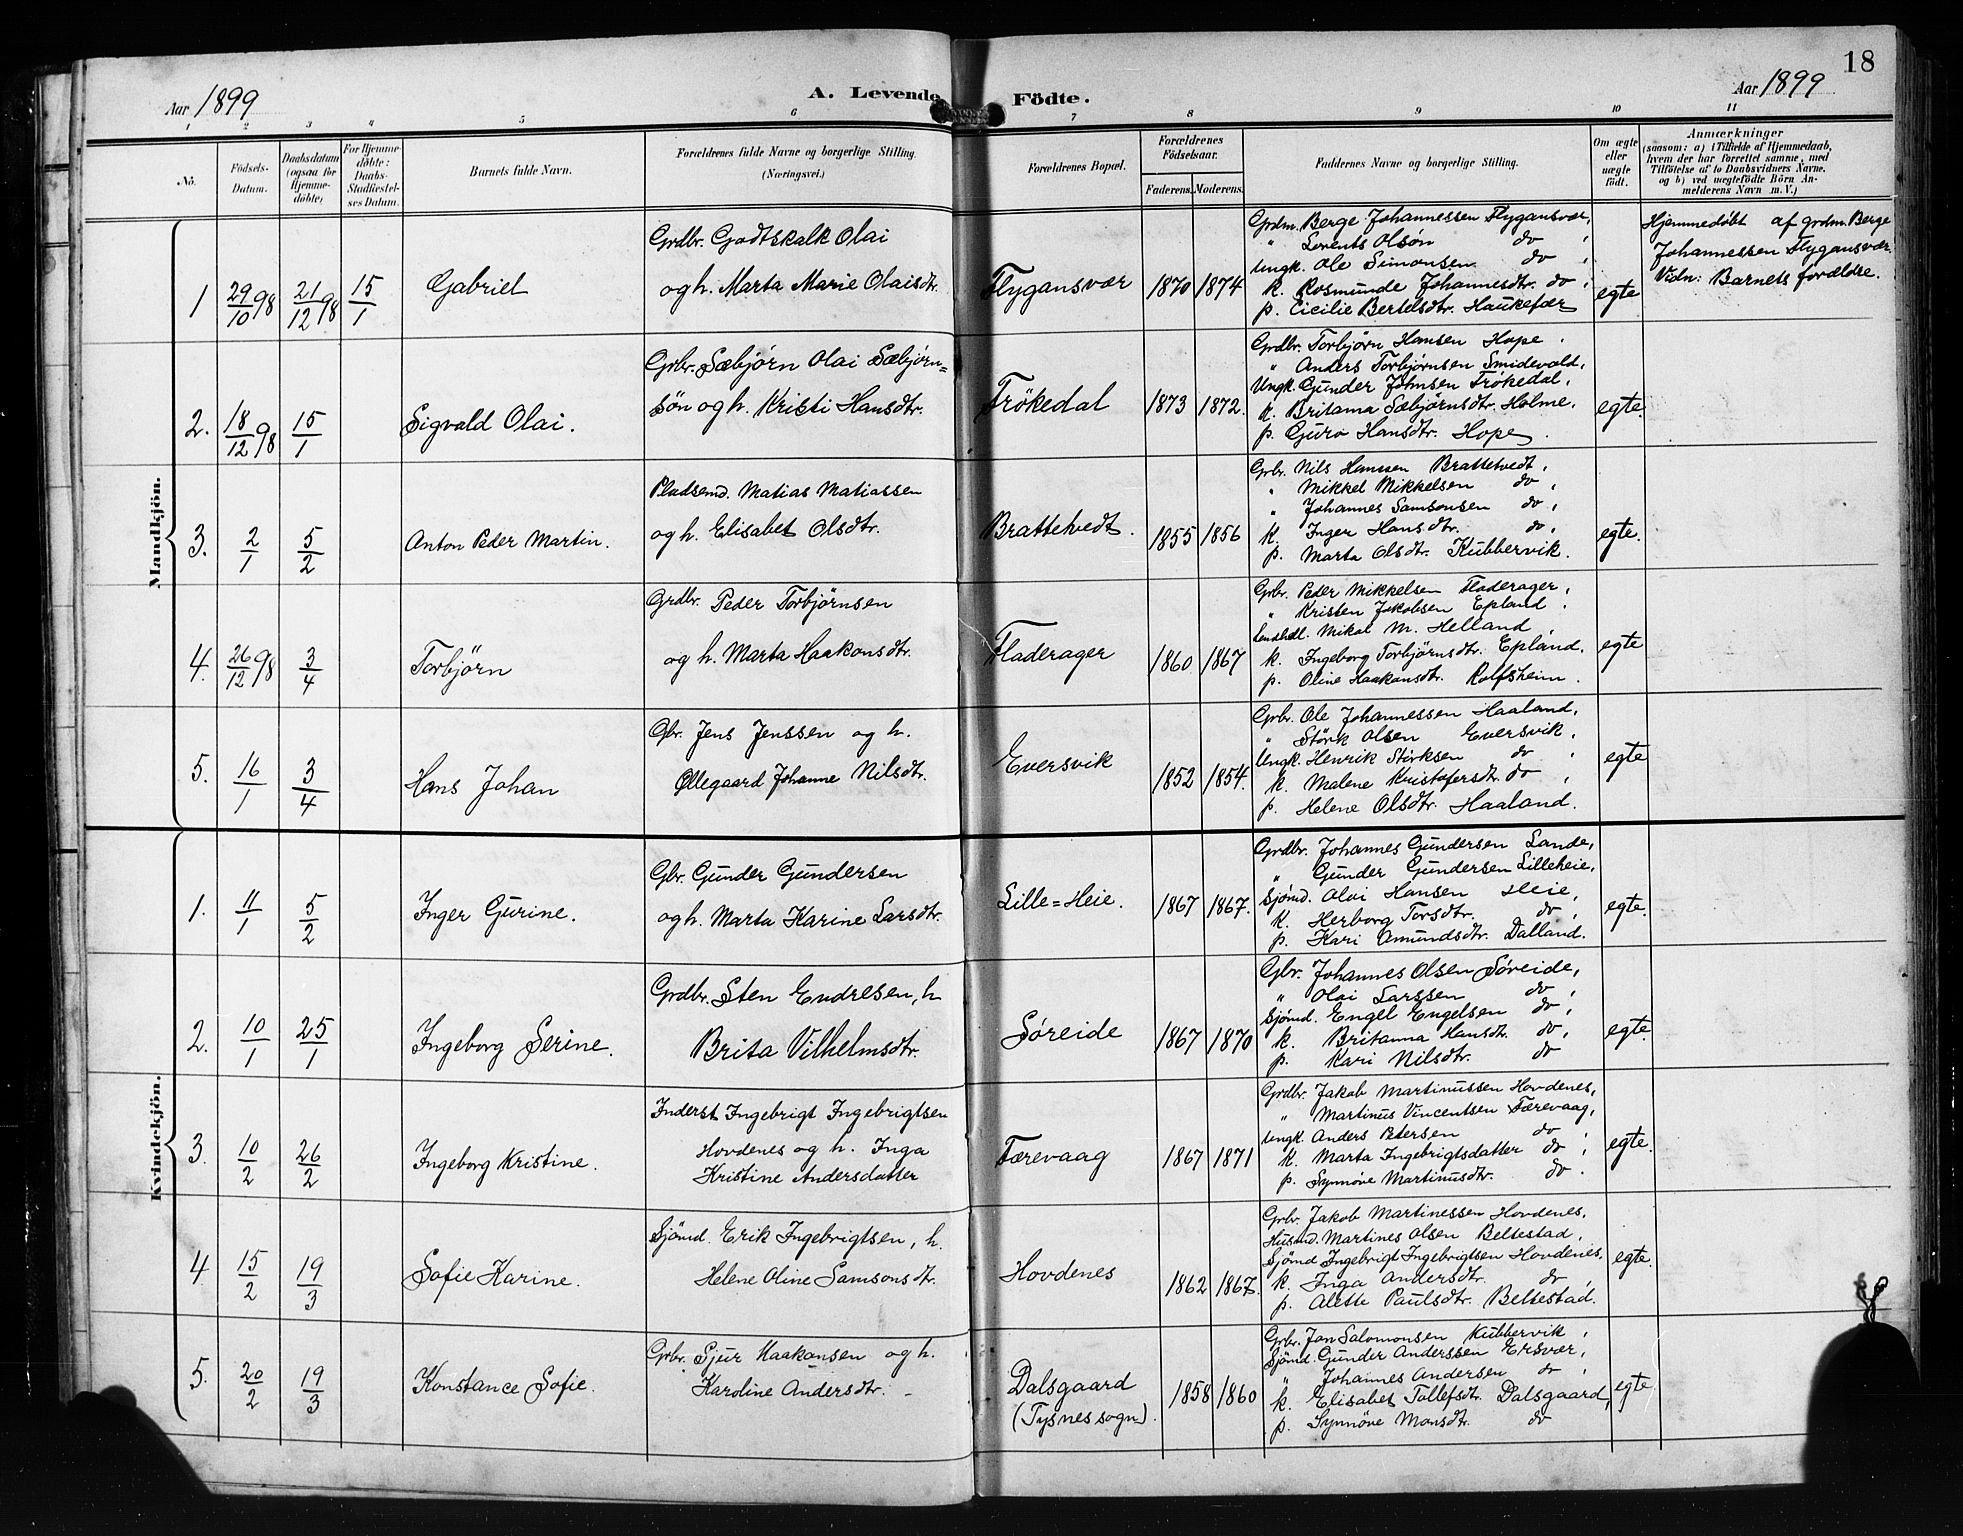 18
Aar 1899
A. Levende Födte.
Aar 1899
1 2 3 4 5 6 7 8 9 10 11
No.
Födsels-Datum.
Daabsdatum (ogsaa for Hjemmedöbte)
For Hjemmedöbte: Daabs-Stadfæstelses Datum.
Barnets fulde Navn.
Forældrenes fulde Navne og borgerlige Stilling.
(Næringsvei.)
Forældrenes Bopæl.
Forældrenes Födselsaar.
Faderens. Moderens.
Faddernes Navne og borgerlige Stilling.
Om ægte eller uægte födt.
Anmærkninger
(saasom: a) i Tilfælde af Hjemmedaab, hvem der har forrettet samme, med Tilföielse af to Daabsvidners Navne, og b) ved uægtefödte Börn Anmelderens Navn m. V.)
Mandkjön.
1 29/10 98 21/12 98 15/1 Gabriel
Grdbr. Godtskalk Olai
og h. Marta Marie Olaisdtr.
Flygansvær 1870 1874
Grdm. Berge Johannessen Flygansvær,
" Lorents Olsøn do,
Ungk. Ole Simonsen do,
k. Rosmunde Johannesdtr. do,
p. Cicilie Bertelsdtr. Haukefær
egte
Hjemmedøbt af grdm. Berge
Johannessen Flygansvær.
Vidn: Barnets forældre.
2. 18/12 98 15/1 Sigvald Olai.
Grbr. Sæbjørn Olai Sæbjørn=
søn og h. Kristi Hansdtr.
Frökedal 1873 1872.
Grdbr. Torbjørn Hansen Hope.
" Anders Torbjørnsen Smidevold,
Ungk. Gunder Johnsen Frøkedal,
k. Britama Sæbjørnsdtr. Holme,
p. Guro Hansdtr. Hope.
egte.
3. 2/1 5/2 Anton Peder Martin.
Pladsemd. Matias Matiassen
og h. Elisabet Olsdtr.
Brattetvedt. 1855 1856
Grbr. Nils Hanssen Brattetvedt,
" Mikkel Mikkelsen do,
" Johannes Samsonsen do,
k. Inger Hansdtr. do,
p. Marta Olsdtr. Kubbervik.
egte.
4. 26/12 98 3/4 Torbjörn
Grdbr. Peder Torbjørnsen
og h. Marta Haakonsdtr.
Fladerager 1860 1867
Grbr. Peder Mikkelsen Fladerager,
" Kristen Jakobsen Epland.
Landhdl. Mikal M. Helland
k. Ingeborg Torbjørnsdtr. Epland.
p. Oline Haakonsdtr. Rolfsheim.
egte
5. 16/1 3/4 Hans Johan
Gbr. Jens Jenssen og h.
Ollegaard Johanne Nilsdtr.
Eversvik 1852 1854.
Grbr. Ole Johannessen Haaland,
" Störk Olsen Eversvik,
Ungk. Henrik Störksen do,
k. Malene Kristofersdtr. do,
p. Helene Olsdtr. Haaland.
egte
Kvindekjön.
1. 11/1 5/2 Inger Gurine.
Gbr. Gunder Gundersen
og h. Marta Karine Larsdtr.
Lille=Heie. 1867 1867.
Grdbr. Johannes Gundersen Lande,
" Gunder Gundersen Lilleheie,
Sjömd. Olai Hansen Heie,
k. Herborg Torsdtr. do,
p. Kari Amundsdtr. Dalland.
egte.
2. 10/1 25/1 Ingeborg Serine.
Grdbr. Sten Endresen, h.
Brita Vilhelmsdtr.
Søreide 1867 1870
Gbr. Johannes Olsen Søreide,
" Olai Larssen do,
Sjömd. Engel Engelsen do,
k. Britanna Hansdtr. do,
p. Kari Nilsdtr. do
egte.
3. 10/2 26/2 Ingeborg Kristine.
Inderst Ingebrigt Ingebrigtsen
Hovdenes og h. Inga
Kristine Andersdatter
Færevaag 1867 1871
Grdbr. Jakob Martinussen Hovdenes,
" Martinus Vincentsen Færevaag,
Ungk. Anders Petersen do,
k. Marta Ingebrigtsdatter do,
p. Synnøve Martinusdtr. do.
egte.
4. 15/2 19/3 Sofie Karine.
Sjömd. Erik Ingebrigtsen, h.
Helene Oline Samsonsdtr.
Hovdenes 1862 1867.
Grbr. Jakob Martinessen Hovdenes,
Husmd. Martines Olsen Beltestad,
Sjömd Ingebrigt Ingebrigtsen Hovdenes,
k. Inga Andersdtr. do,
p. Alette Paulsdtr. Beltestad.
egte.
5. 20/2 19/3 Konstance Sofie.
Grbr. Sjur Haakonsen og h.
Karoline Andersdtr. -
Dalsgaard
(Tysnes sogn). 1858 1860
Grbr. Jan Salomonsen Kubbervik,
Sjömd. Gunder Anderssen Ersvær,
" Johannes Andersen do,
k. Elisabet Tollefsdtr. Dalsgaard,
p. Synnöve Monsdtr. do
egte